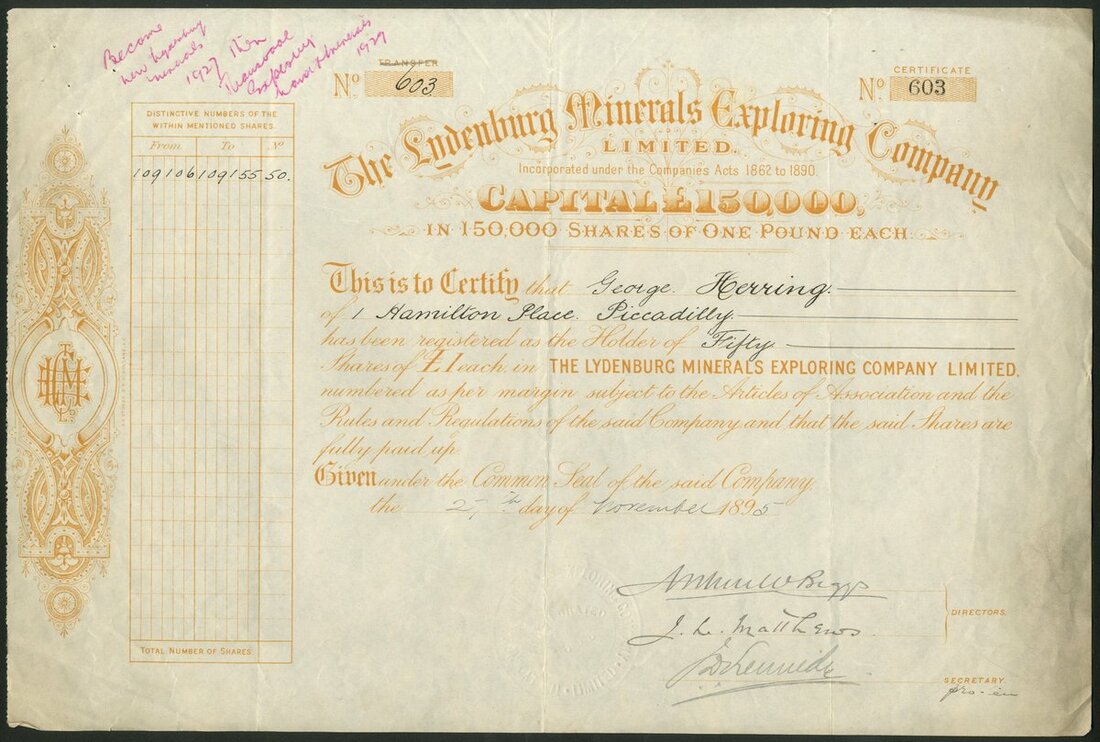 Become
new Lydenburg
minerals
1927 then
Transvaal
Exploring
Land & Minerals
1929
TRANSFER
No 603
CERTIFICATE
No 603
The Lydenburg Minerals Exploring Company
LIMITED.
Incorporated under the Companies Acts 1862 to 1890.
CAPITAL £150,000,
IN 150,000 SHARES OF ONE POUND EACH.
DISTINCTIVE NUMBERS OF THE
WITHIN MENTIONED SHARES.
From To No
109106 109155 50.
TOTAL NUMBER OF SHARES
This is to Certify that George Herring
of 1 Hamilton Place. Piccadilly
has been registered as the Holder of Fifty
Shares of £1 each in THE LYDENBURG MINERALS EXPLORING COMPANY LIMITED,
numbered as per margin subject to the Articles of Association and the
Rules and Regulations of the said Company and that the said Shares are
fully paid up.
Given under the Common Seal of the said Company
the 27th day of November 1895
Arthur W Biggs
J. L. Matthews
DIRECTORS.
SECRETARY
pro-em